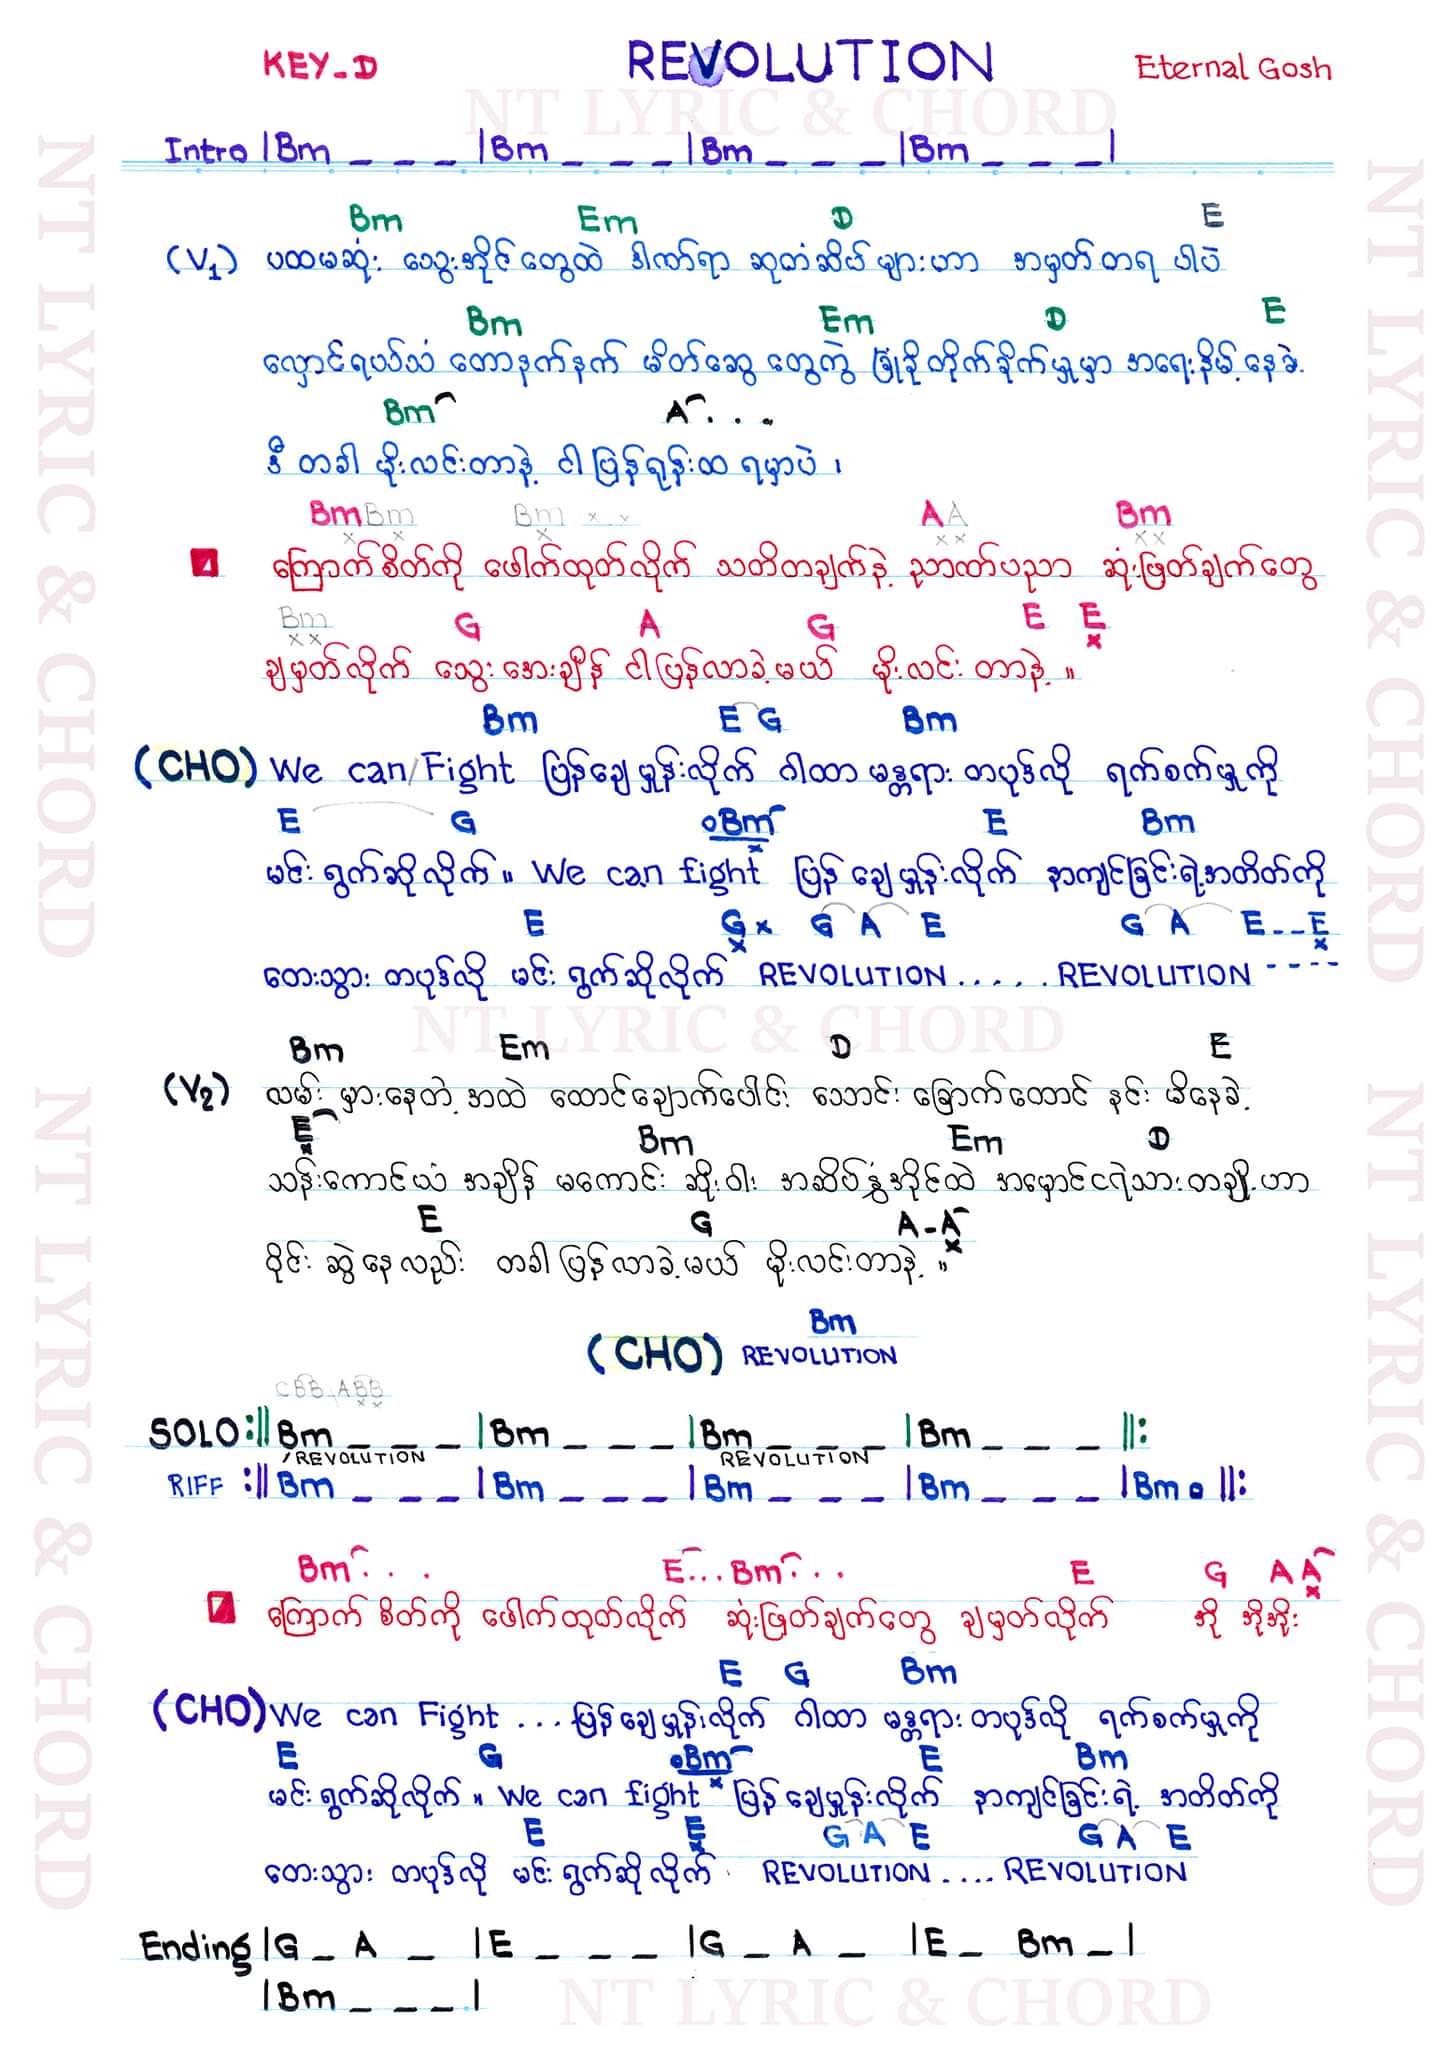 KEY_D REVOLUTION Eternal Gosh
NT LYRIC & CHORD
Intro |Bm _ _ _ |Bm _ _ _ |Bm _ _ _ |Bm _ _ _|
Bm Em D E
(V1) ပထမဆုံး သွေးအိုင်တွေထဲ ဒါဏ်ရာ ဆုတံဆိပ်များဟာ အမှတ်တရ ပါပဲ
Bm Em D E
လှောင်ရယ်သံ တောနက်နက် မိတ်ဆွေတွေကွဲ ခြုံခိုတိုက်ခိုက်မှုမှာ အရေးနိမ့်နေခဲ့
Bm A . . .
ဒီတခါ မိုးလင်းတာနဲ့ ငါပြန်ရုန်းထ ရမှာပဲ ၊
Bm Bm Bm x x A A Bm
ကြောက်စိတ်ကို ဖေါက်ထုတ်လိုက် သတိတချက်နဲ့ ညာဏ်ပညာ ဆုံးဖြတ်ချက်တွေ
Bm G A G E E
ချမှတ်လိုက် သွေးအေးချိန် ငါပြန်လာခဲ့မယ် မိုးလင်းတာနဲ့ ။
Bm E G Bm
(CHO) We can Fight ပြန်ချေမှုန်းလိုက် ဂါထာ မန္တရားတပုဒ်လို ရက်စက်မှုကို
E G Bm E Bm
မင်းရွတ်ဆိုလိုက်။ We can fight ပြန်ချေမှုန်းလိုက် နာကျင်ခြင်းရဲ့အတိတ်ကို
E G x G A E G A E _ _ E
တေးသွားတပုဒ်လို မင်းရွတ်ဆိုလိုက် REVOLUTION . . . . . REVOLUTION - - - -
NT LYRIC & CHORD
Bm Em D E
(V2) လမ်းမှားနေတဲ့အထဲ ထောင်ချောက်ပေါင်း သောင်းခြောက်ထောင် နင်းမိနေခဲ့
E Bm Em D
သန်းကောင်ယံ အချိန်မကောင်း ဆိုးဝါး အဆိပ်နွံအိုင်ထဲ အမှောင်ငရဲသားတချို့ဟာ
E G A - A
ဝိုင်းဆွဲနေလည်း တခါပြန်လာခဲ့မယ် မိုးလင်းတာနဲ့ ။
Bm
(CHO) REVOLUTION
CBB ABB
SOLO :|| Bm _ _ _ |Bm _ _ _ |Bm _ _ _ |Bm _ _ _ ||:
REVOLUTION REVOLUTION
RIFF :|| Bm _ _ _ |Bm _ _ _ |Bm _ _ _ |Bm _ _ _ |Bm ||:
Bm . . . E . . . Bm . . . E G A A
ကြောက်စိတ်ကို ဖေါက်ထုတ်လိုက် ဆုံးဖြတ်ချက်တွေ ချမှတ်လိုက် အို အိုအိုး
E G Bm
(CHO) We can Fight . . . ပြန်ချေမှုန်းလိုက် ဂါထာ မန္တရားတပုဒ်လို ရက်စက်မှုကို
E G Bm E Bm
မင်းရွတ်ဆိုလိုက်။ We can fight ပြန်ချေမှုန်းလိုက် နာကျင်ခြင်းရဲ့ အတိတ်ကို
E E G A E G A E
တေးသွားတပုဒ်လို မင်းရွတ်ဆိုလိုက် REVOLUTION . . . . REVOLUTION
Ending |G _ A _ |E _ _ _ |G _ A _ |E _ Bm _ |
|Bm _ _ _ |
NT LYRIC & CHORD
NT LYRIC & CHORD
NT LYRIC & CHORD
NT LYRIC & CHORD
NT LYRIC & CHORD